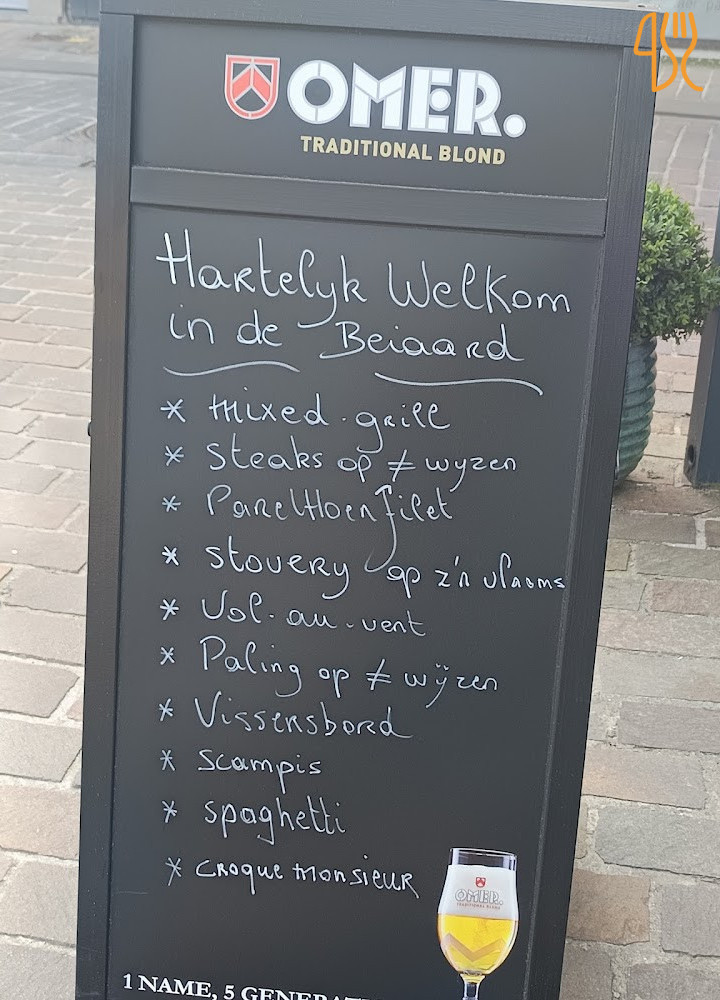 OMER.
TRADITIONAL BLOND
Hartelyk Welkom
in de Beiaard
* mixed-grill
* Steaks op ≠ wyzen
* Parelhoenfilet
* stovery op z'n vlaams
* Vol-au-vent
* Paling op ≠ wÿzen
* Vissersbord
* scampis
* spaghetti
* croque monsieur
OMER.
TRADITIONAL BLOND
1 NAME, 5